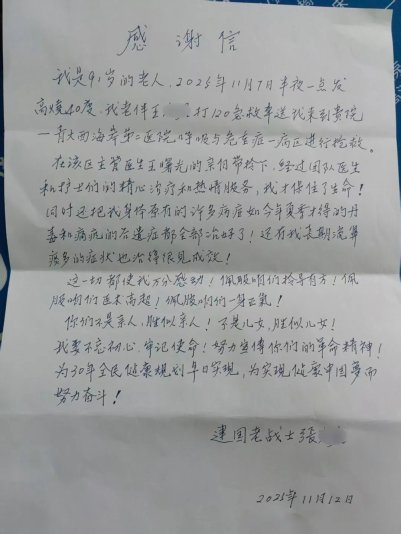 感谢信
我是91岁的老人，2025年11月7日半夜一点发
高烧40度，我老伴王 打120急救车送我来到贵院
一青大西海岸第二医院呼吸与危重症一病区进行抢救。
在该区主管医生王曙光的亲自带领下，经过团队医生
和护士们的精心治疗和热情服务，我才保住了生命！
同时还把我身体原有的许多病症如今年夏季才得的丹
毒和痛风的后遗症都全部治好了！还有我长期流鼻
痰多的症状也治得很见成效！
这一切都使我万分感动！佩服咱们领导有方！佩
服咱们医术高超！佩服咱们一身正气！
你们不是亲人，胜似亲人！不是儿女，胜似儿女！
我要不忘初心，牢记使命！努力宣传你们的革命精神！
为30年全民健康规划早日实现，为实现健康中国梦而
努力奋斗！
建国老战士張
2025年11月12日